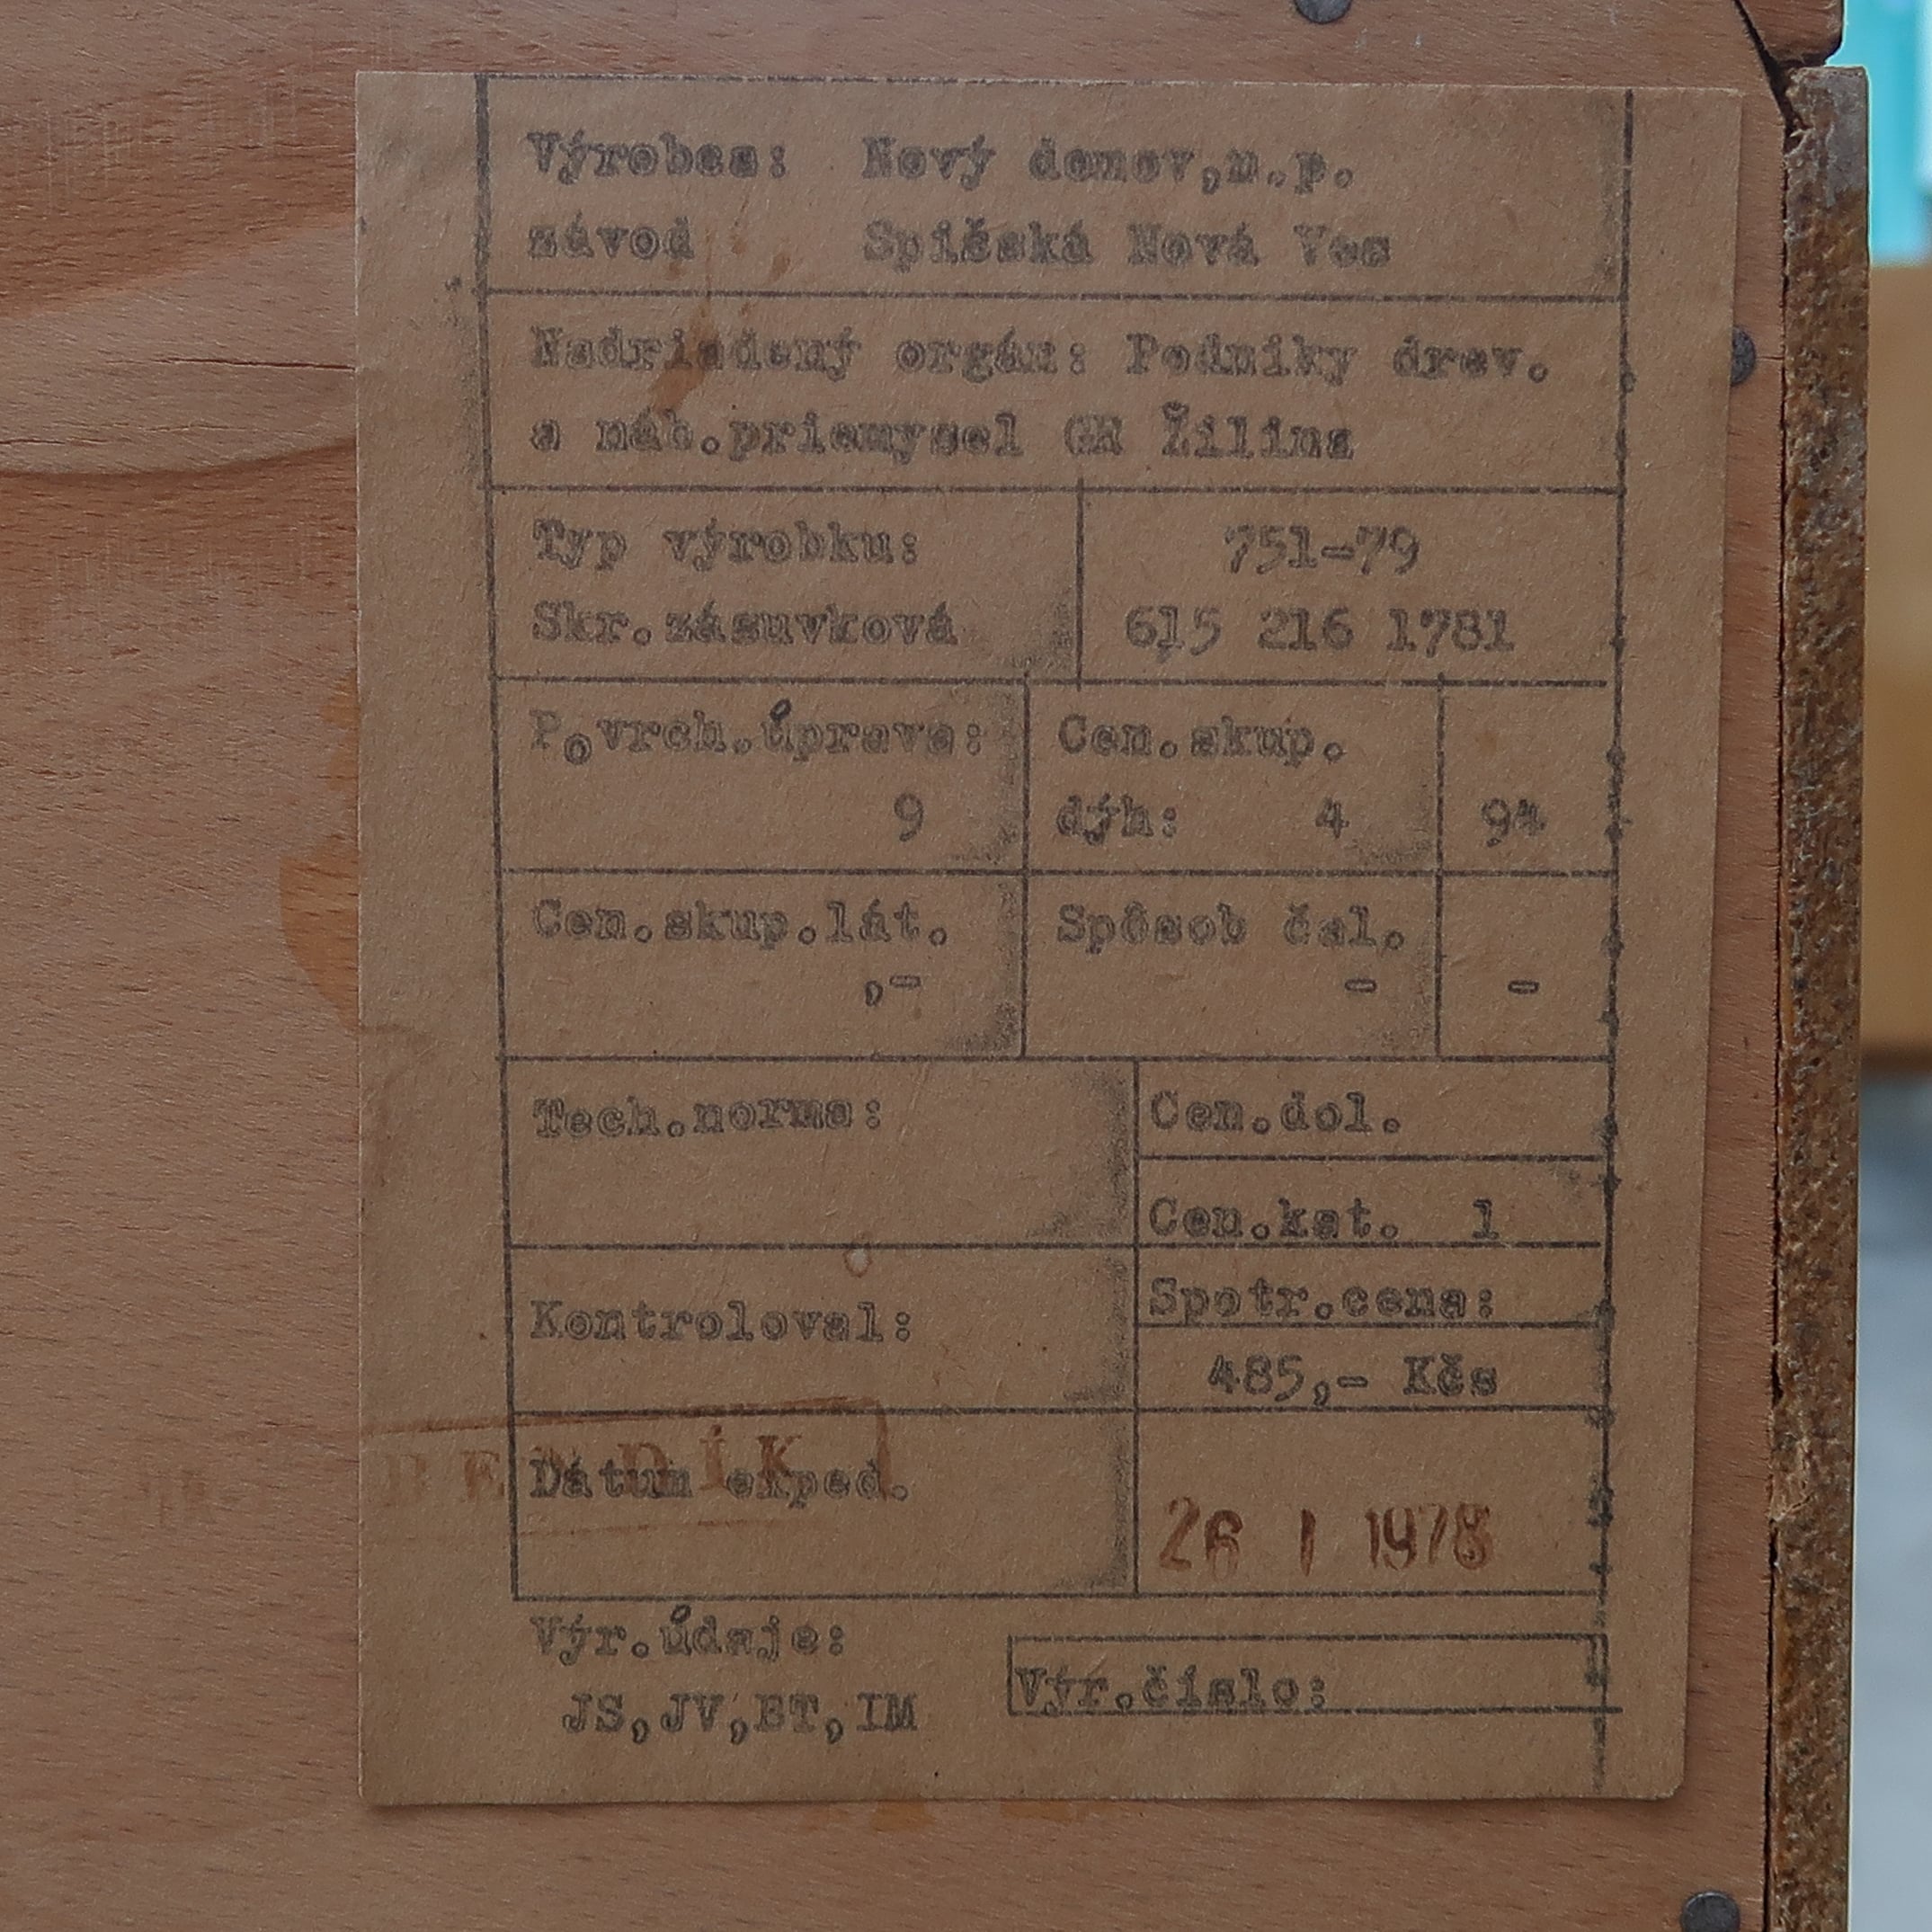 Výrobca: Nový domov,n.p.
závod Spišská Nová Ves
Nadriadený orgán: Podniky drev.
a náb.priemysel GR Žilina
Typ výrobku: 751-79
Skr.zásuvková 615 216 1781
Povrch.úprava: Cen.skup.
9 dýh: 4 94
Cen.skup.lát. Spôsob čal.
,- - -
Tech.norma: Cen.dol.
Cen.kat. 1
Kontroloval: Spotr.cena:
485,- Kčs
BENDÍK
Dátum exped.
26 1 1978
Výr.údaje:
Výr.číslo:
JS,JV,BT,IM